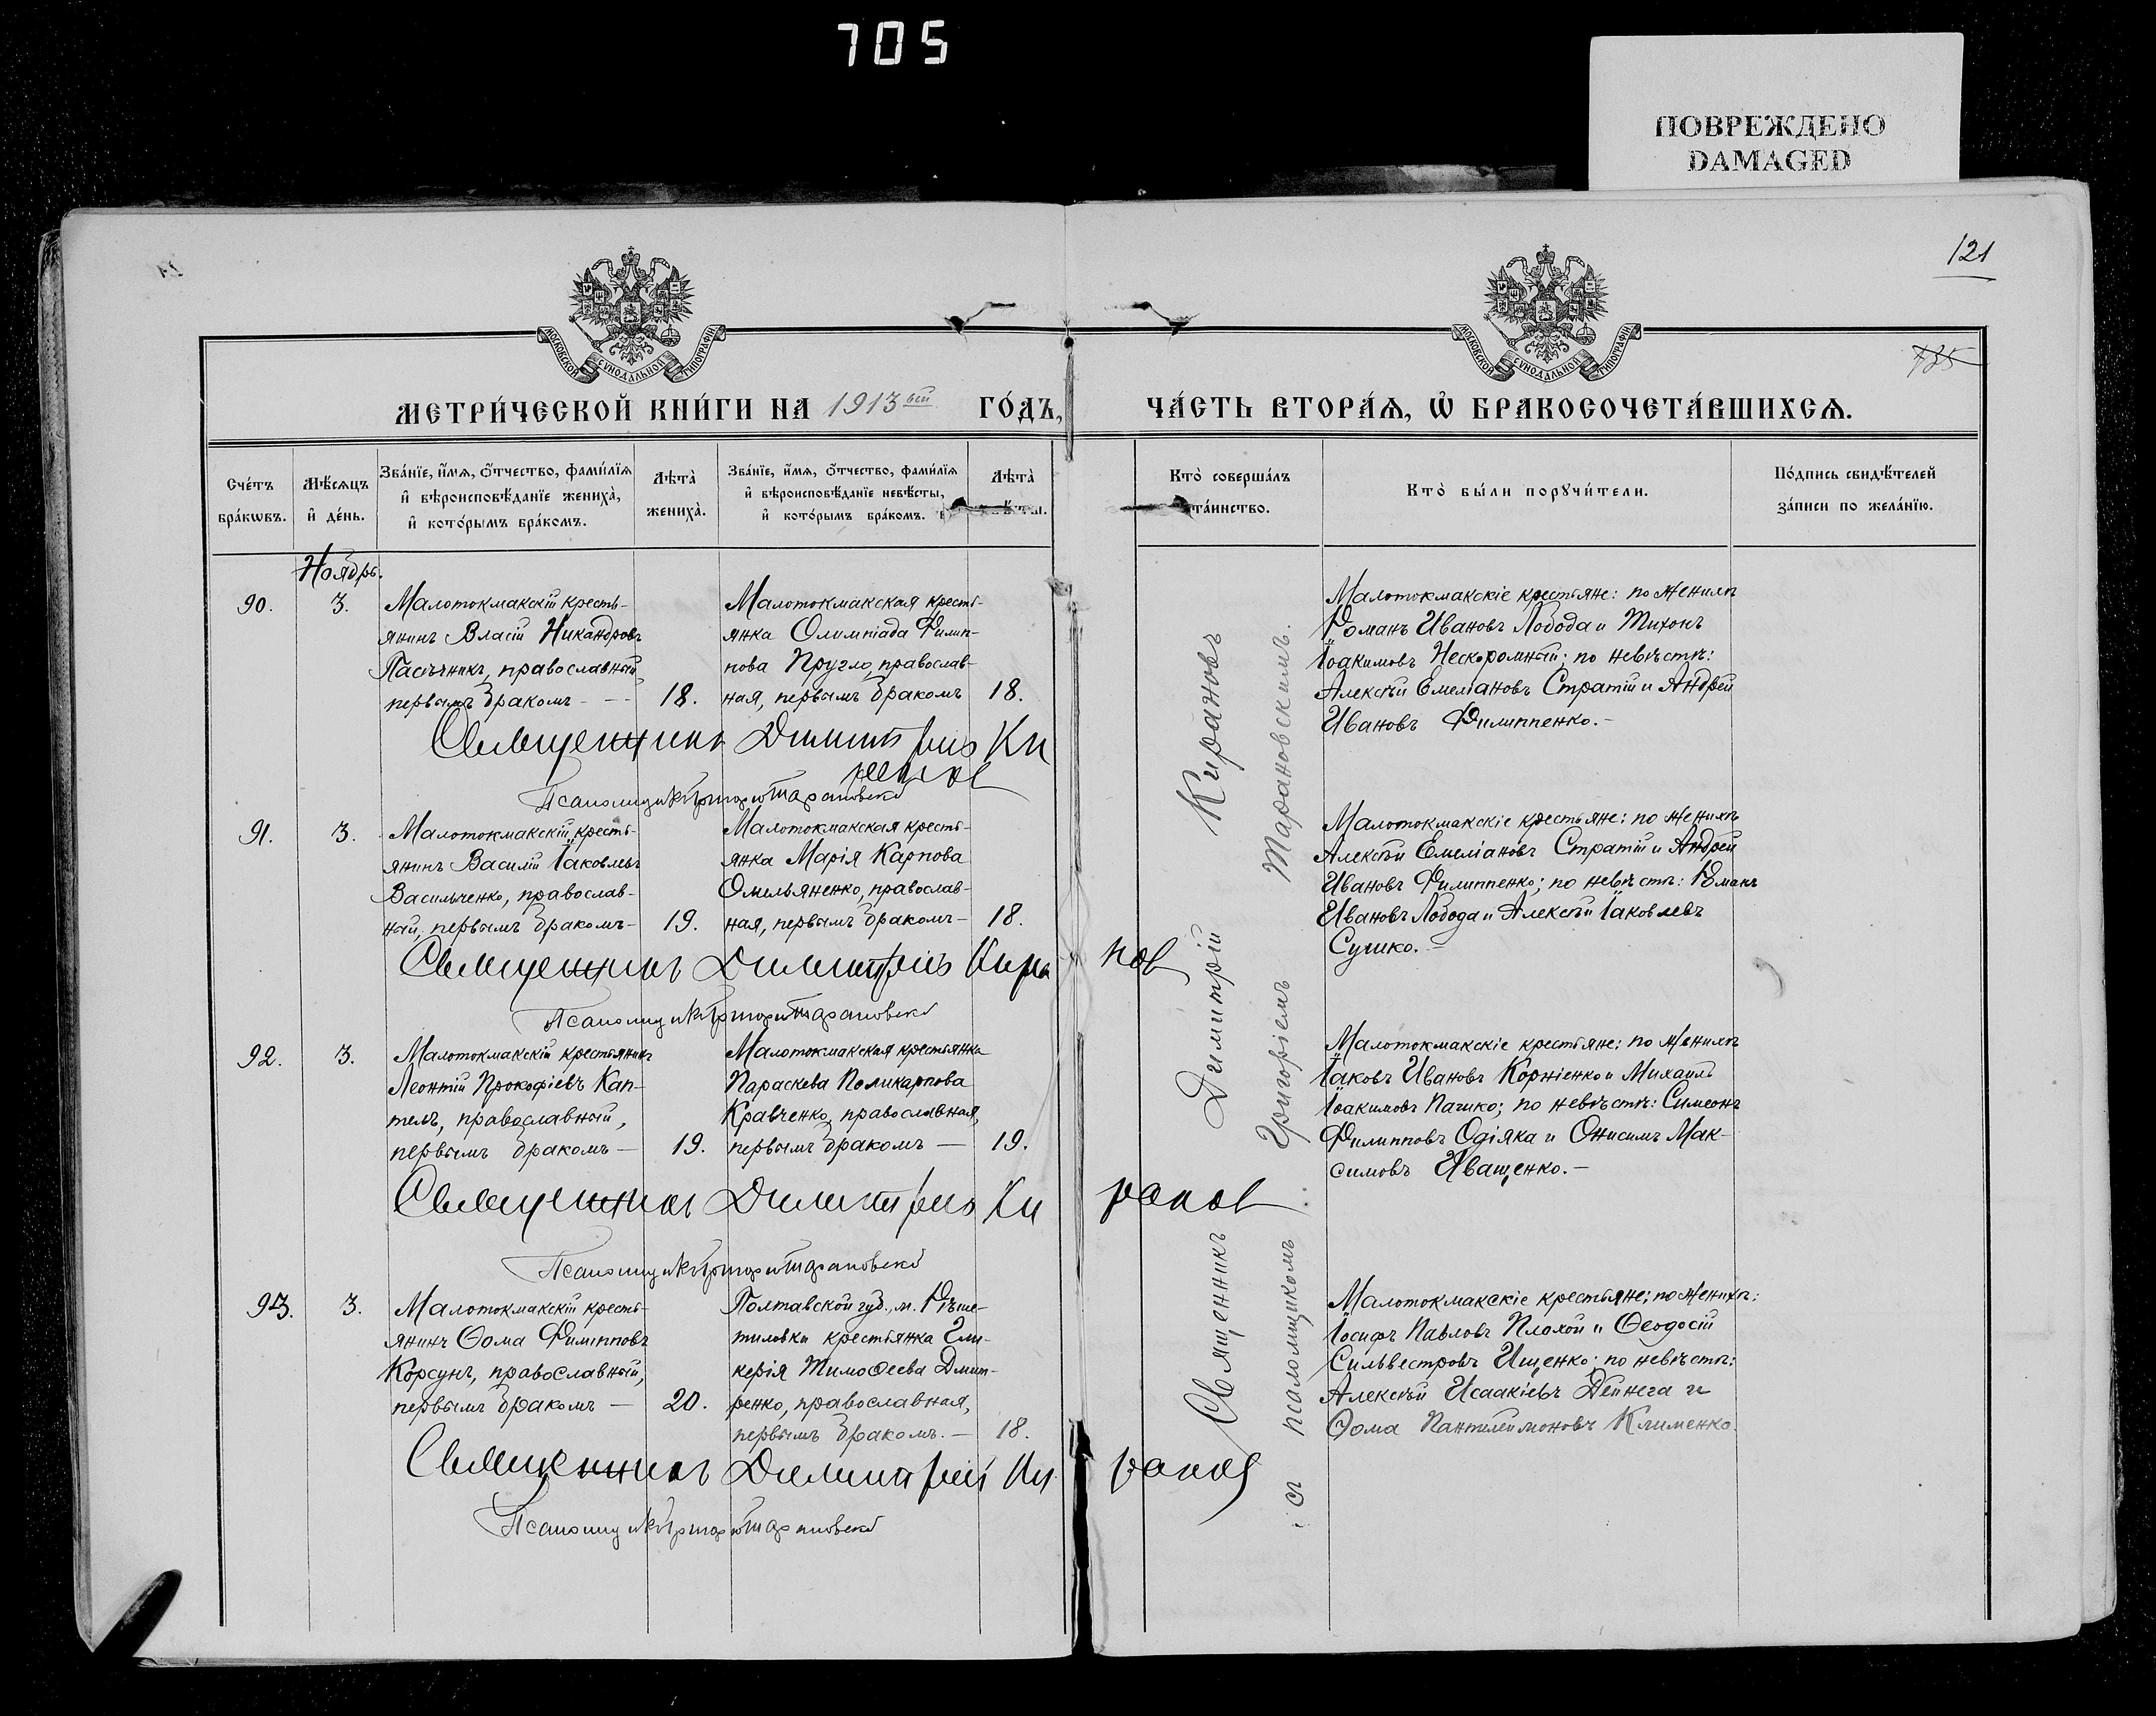 705
ПОВРЕЖДЕНО
DAMAGED
121
735
МОСКОВСКОЙ СѴНОДАЛЬНОЙ ТИПОГРАФІИ
МОСКОВСКОЙ СѴНОДАЛЬНОЙ ТИПОГРАФІИ
МЕТРИ́ЧЕСКОЙ КНИ́ГИ НА 1913ый ГО́ДЪ,
ЧА́СТЬ ВТОРА́Ѧ, Ѿ БРАКОСОЧЕТА́ВШИХСѦ.
Сче́тъ бра́кѡвъ.
Мѣ́сѧцъ и҆ де́нь.
Зва́нїе, и҆́мѧ, ѻ҆́тчество, фами́лїѧ и҆ вѣроисповѣ́данїе жениха̀, и҆ кото́рымъ бра́комъ.
Лѣта̀ жениха̀.
Зва́нїе, и҆́мѧ, ѻ҆́тчество, фами́лїѧ и҆ вѣроисповѣ́данїе невѣ́сты, и҆ кото́рымъ бра́комъ.
Лѣта̀
Кто̀ соверша́лъ та́инство.
Кто̀ бы́ли порꙋчи́тели.
По́дпись свидѣ́телей за́писи по жела́нїю.
Ноябрь.
90.
3.
Малотокмакскій кресть-
янинъ Власій Никандровъ
Пасѣчникъ, православный
первымъ бракомъ - --
18.
Малотокмакская кресть-
янка Олимпіада Филип-
пова Пругло, православ-
ная, первымъ бракомъ
18.
Малотокмакскіе крестьяне: по женихѣ
Романъ Ивановъ Лобода и Тихонъ
Іоакимовъ Нескоромный; по невѣстѣ:
Алексѣй Емеліановъ Стратій и Андрей
Ивановъ Филиппенко.-
Священникъ Димитрій Ки
ранов
Псаломщикъ Григорій Тарановскій
91.
3.
Малотокмакскій кресть-
янинъ Василій Іаковлевъ
Васильченко, православ-
ный, первымъ бракомъ-
19.
Малотокмакская кресть-
янка Марія Карпова
Омельяненко, православ-
ная, первымъ бракомъ-
18.
Малотокмакскіе крестьяне: по женихѣ
Алексѣй Емеліановъ Стратій и Андрей
Ивановъ Филиппенко; по невѣстѣ: Романъ
Ивановъ Лобода и Алексѣй Іаковлевъ
Сушко.-
Священникъ Димитрій Кира нов
Псаломщикъ Григорій Тарановскій
92.
3.
Малотокмакскій крестьянинъ
Леонтій Прокофіевъ Кап-
тель, православный,
первымъ бракомъ-
19.
Малотокмакская крестьянка
Параскева Поликарпова
Кравченко, православная,
первымъ бракомъ -
19.
Малотокмакскіе крестьяне: по женихѣ
Іаковъ Ивановъ Корніенко и Михаилъ
Іоакимовъ Пачико; по невѣстѣ: Симеонъ
Филипповъ Одіяка и Онисимъ Мак-
симовъ Иващенко.-
Священникъ Димитрій Ки ранов
Псаломщикъ Григорій Тарановскій
93.
3.
Малотокмакскій кресть-
янинъ Ѳома Филипповъ
Корсунъ, православный,
первымъ бракомъ -
20.
Полтавской губ., м. Рѣше-
тиловки крестьянка Гли-
керія Тимоѳеева Дмит-
ренко, православная,
первымъ бракомъ.-
18.
Малотокмакскіе крестьяне; по женихѣ:
Іосифъ Павловъ Плохой и Ѳеодосій
Сильвестровъ Ищенко; по невѣстѣ:
Алексѣй Исаакіевъ Дейнега и
Ѳома Пантелеимоновъ Клименко.
Священникъ Димитрій Ки ранов
Псаломщикъ Григорій Тарановскій
Священникъ Димитрій Кирановъ
съ псаломщикомъ Григоріемъ Тарановскимъ.